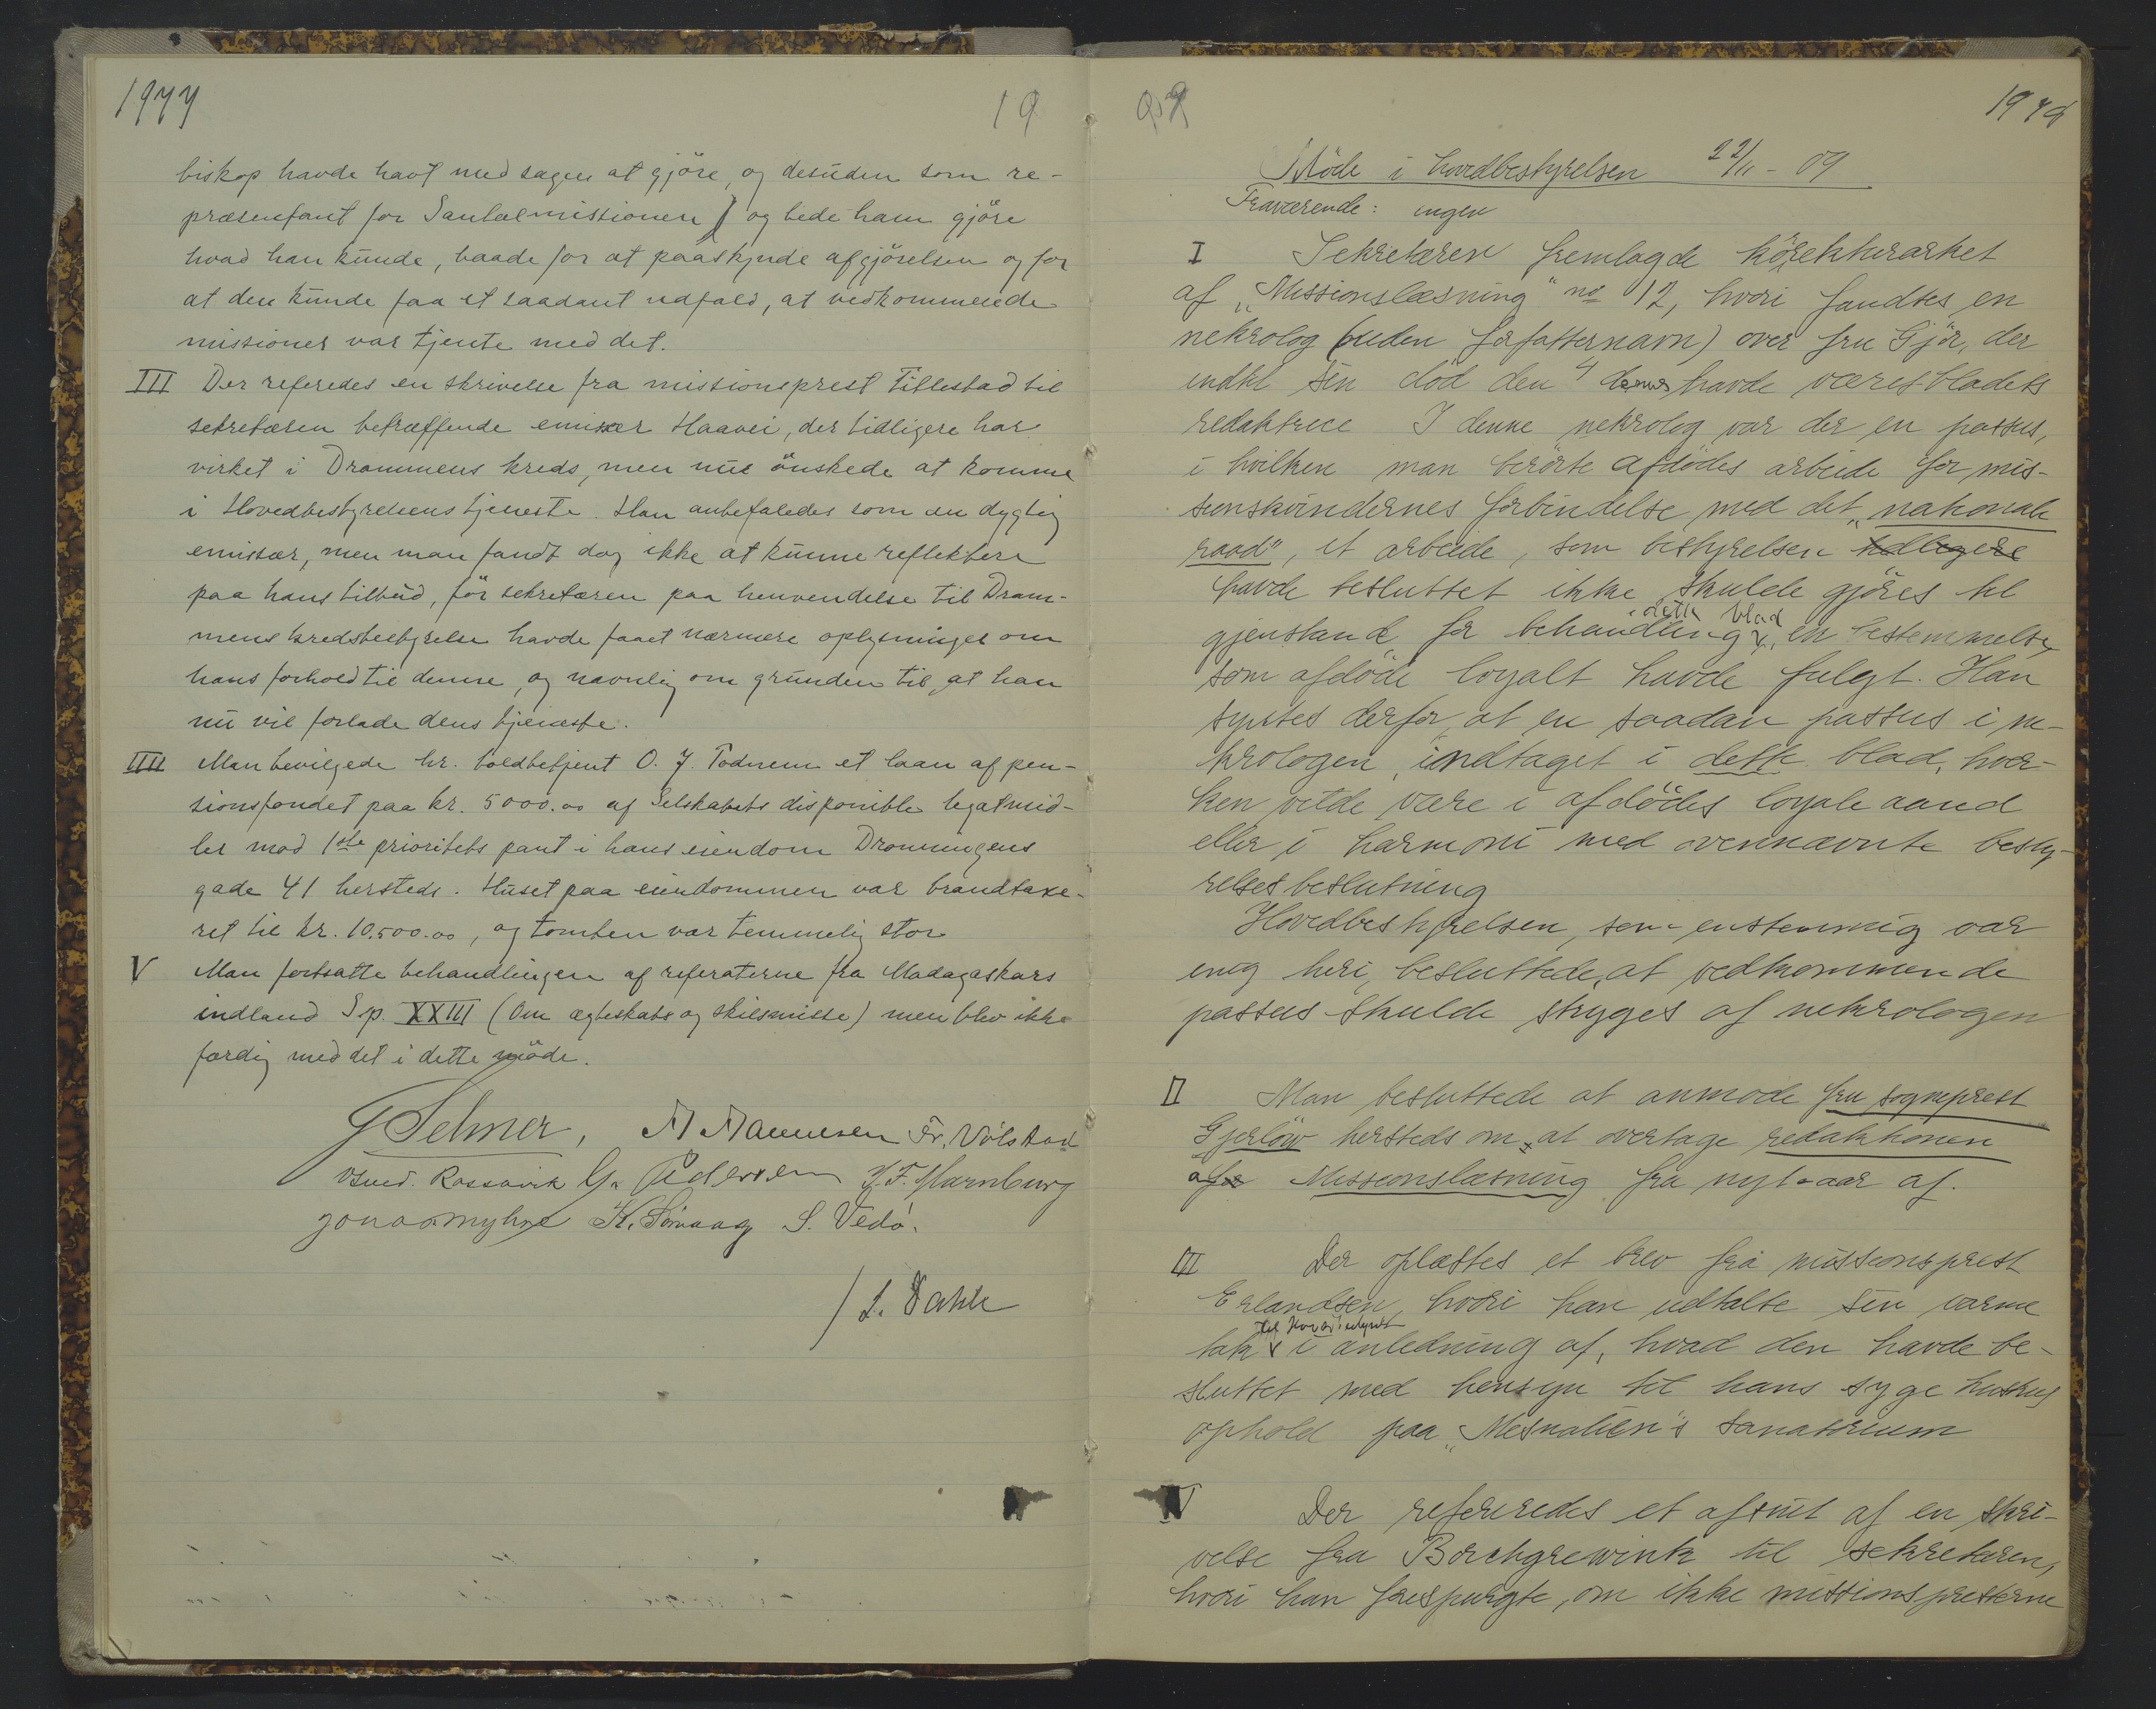 1977
19
biskop havde havt med sagen at gjöre, og desuden som re-
præsentant for Santalmissionen og bede ham gjöre
hvad han kunde, baade for at paaskynde afgjörelsen og for
at den kunde faa et saadant udfald, at vedkommende
missioner var tjente med det.
III Der referedes en skrivelse fra missionsprest Tillestad til
sekretæren betræffende emisær Haavei, der tidligere har
virket i Drammens kreds, men nu önskede at komme
i Hovedbestyrelsens tjeneste. Han anbefaledes som en dygtig
emissær, men man fandt dog ikke at kunne reflektere
paa hans tilbud, för sekretæren paa henvendelse til Dram-
mens kredsbestyrelse havde faaet nærmere oplysninger om
hans forhold til denne, og navnlig om grunden til, at han
nu vil forlade dens tjeneste.
IIII Man bevilgede hr. toldbetjent O. J. Todnem et laan af pen-
sionsfondet paa kr. 5000.00 af Selskabets disponible legatmid-
ler mod 1ste prioritets pant i hans eiendom Dronningens
gade 41 hersteds. Huset paa eiendommen var brandtaxe-
ret til kr. 10.500.00, og tomten var temmelig stor
V Man fortsatte behandlingen af referaterne fra Madagaskars
indland Sp. XXIII (Om ægteskabs og skilsmisse) men blev ikke
færdig med det i dette möde.
G Selmer, Fr. Vølstad
Rassovik G. Pedersen
Jonas Myhre K. S. Vedø.
/ L. Dahle
1978
Möde i hovedbestyrelsen 22/11 - 09
Fraværende: ingen
I Sekretæren fremlagde körekturarket
af "Missionslæsning" no 12, hvori fandtes en
nekrolog (uden forfatternavn) over fru Gjör, der
indtil sin död den 4 dennes havde været bladets
redaktrice I denne nekrolog var der en passus,
i hvilken man berörte afdödes arbeide for mis-
sionskvindernes forbindelse med det "nationale
raad", et arbeide, som bestyrelsen tidligere
havde besluttet ikke skulde gjöres til
gjenstand for behandling i dette blad, en bestemmelse,
som afdöde loyalt havde fulgt. Han
syntes derfor, at en saadan passus i ne-
krologen, indtaget i dette blad, hver-
ken vilde være i afdödes loyale aand
eller i harmoni med ovennævnte besty-
relsesbeslutning
Hovedbestyrelsen, som enstemmig var
enig heri, besluttede, at vedkommende
passus skulde stryges af nekrologen
II Man besluttede at anmode fru sogneprest
Gjerlöw hersteds om at overtage redaktionen
af Missionslæsning fra nyt-aar af.
III Der oplæstes et brev fra missionsprest
Erlandsen, hvori han udtalte sin varme
tak til Hovedbestyrels i anledning af, hvad den havde be-
sluttet med hensyn til hans syge hustrus
ophold paa "Mesnalien's sanatorium
IV Der refereredes et afsnit af en skri-
velse fra Borchgrewink til sekretæren,
hvori han forespurgte, om ikke missionspresterne